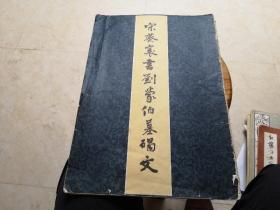 宋蔡襄書劉蒙伯墓碣文